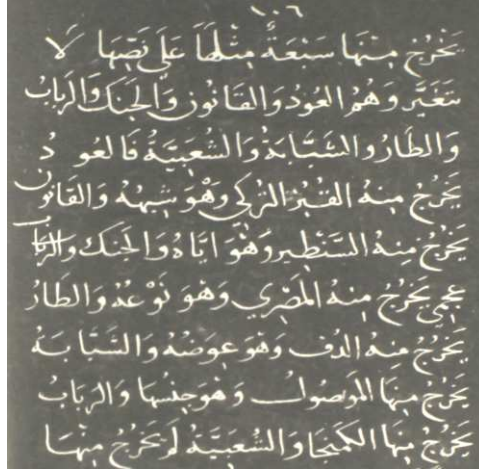 ١٠٦
يخرج منها سبعة مثلها على نصها لا
تتغير وهم العود والقانون والجنك والرباب
والطار والشبابة والشعيبية فالعود
يخرج منه القبز التركي وهو شبهه والقانون
يخرج منه السنطير وهو اياه والجنك والربا
عجمي يخرج منه المصري وهو نوعه والطار
يخرج منه الدف وهو عوضه والشبابة
يخرج منها الموصول وهو جنسها والرباب
يخرج منها الكمنجا والشعيبية لم يخرج منها